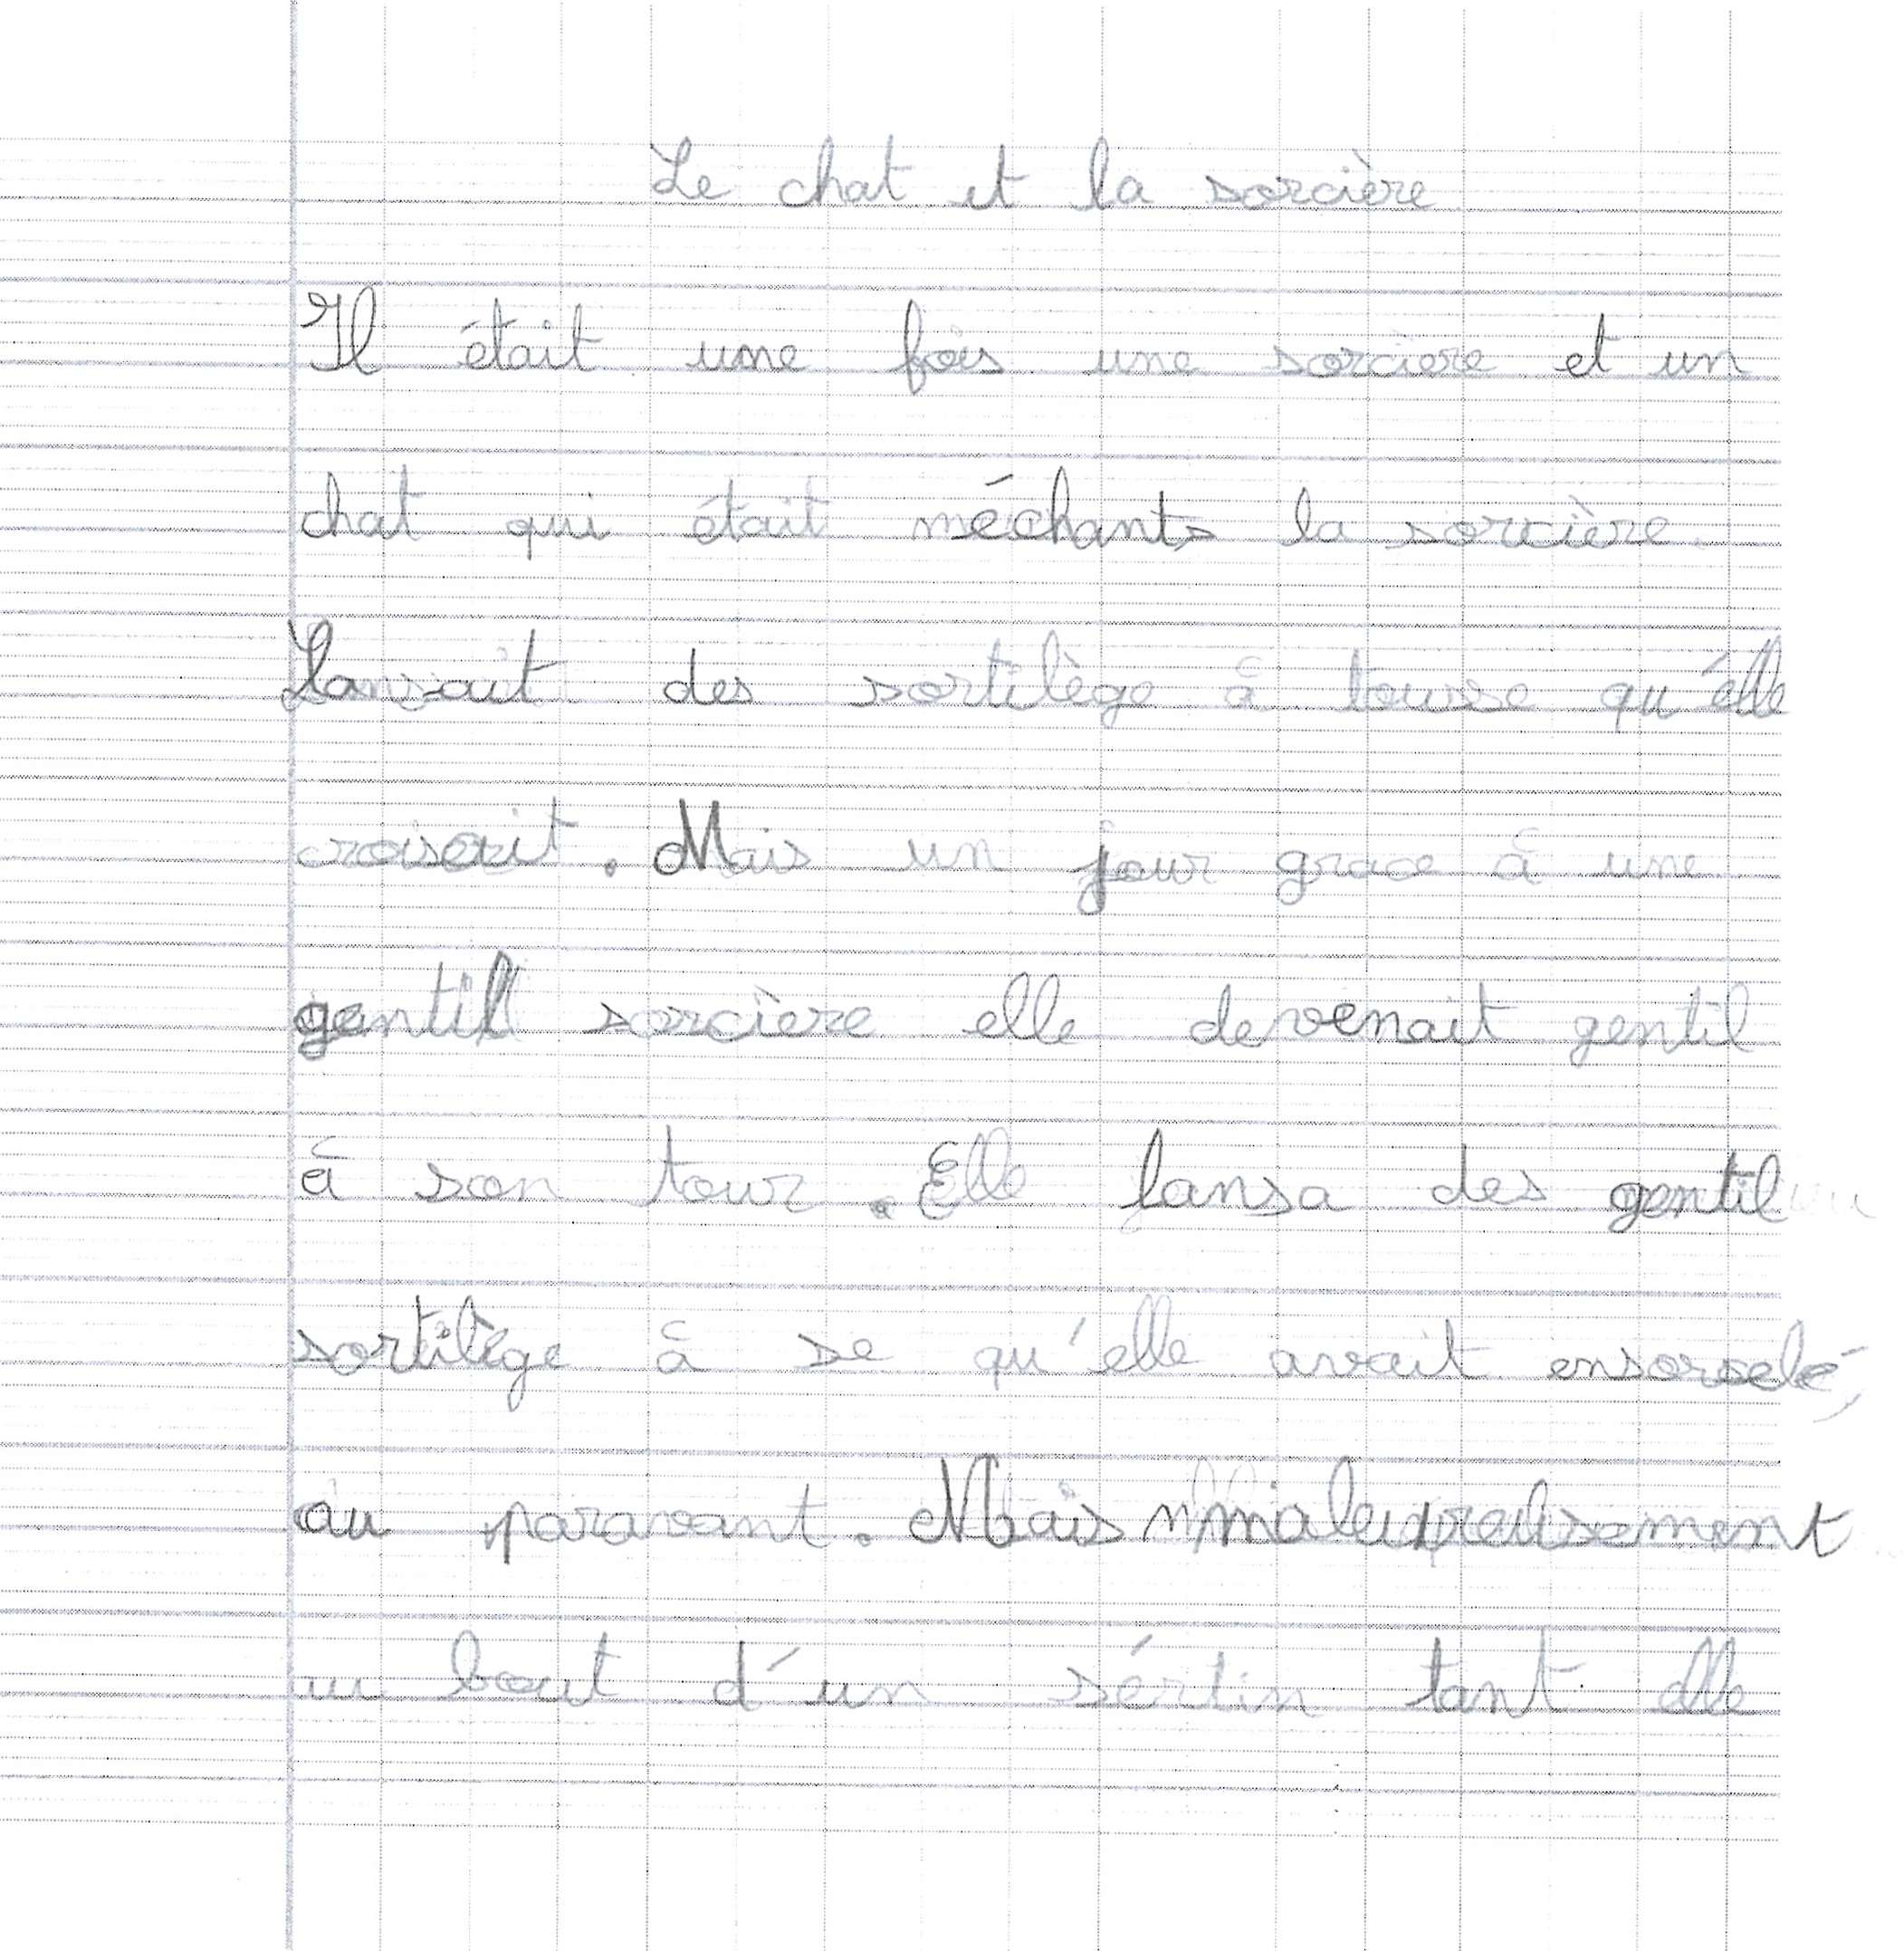 Le chat et la sorcière
Il était une fois une sorciere et un
chat qui était méchants la sorcière.
Lansait des sortilège à tousse qu'elle
croisait. Mais un jour grace à une
gentil sorcière elle devenait gentil
à son tour. Elle lansa des gentil
sortilège à se qu'elle avait ensorselé
au paravant. Mais maleureusement
au bout d'un sértin tant elle